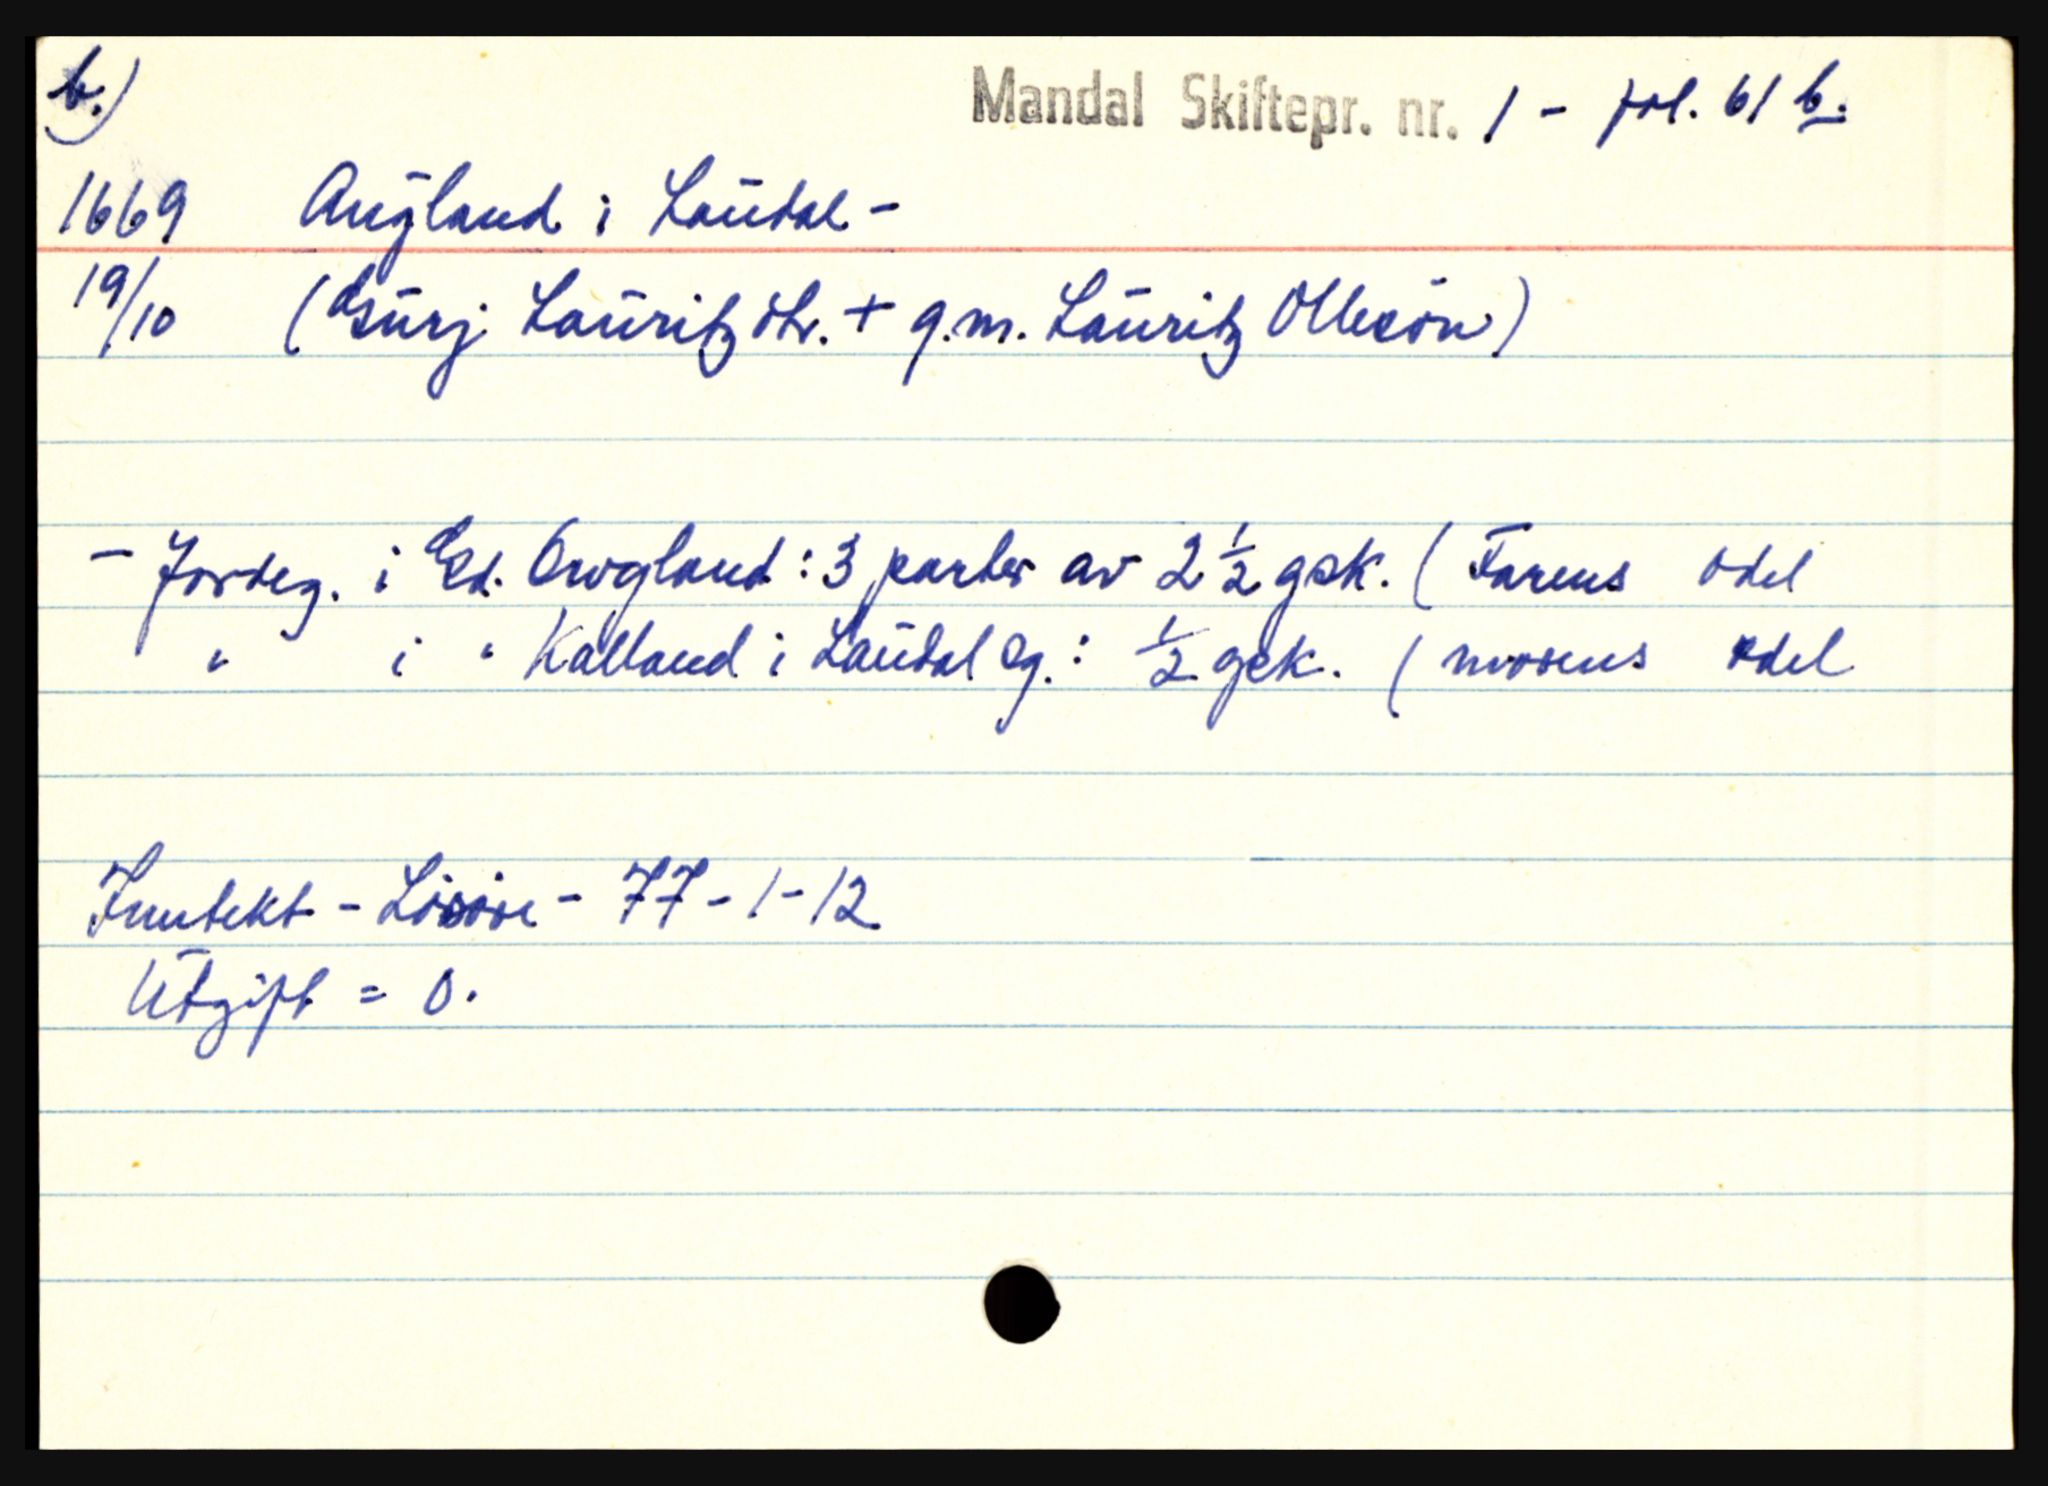 b.)
Mandal Skiftepr. nr. 1 - fol. 61 b.
1669 Augland i Laudal -
19/10 (Gurj Lauritz dtr. + g.m. Lauritz Ollesön)
- Jordeg. i Gd. Owgland : 3 parter av 2 1/2 gsk. ( Farens odel
" i " Kalland i Laudal sg. : 1/2 gsk. ( morens odel
Inntekt - Lösöre - 77-1-12
Utgift = 0.